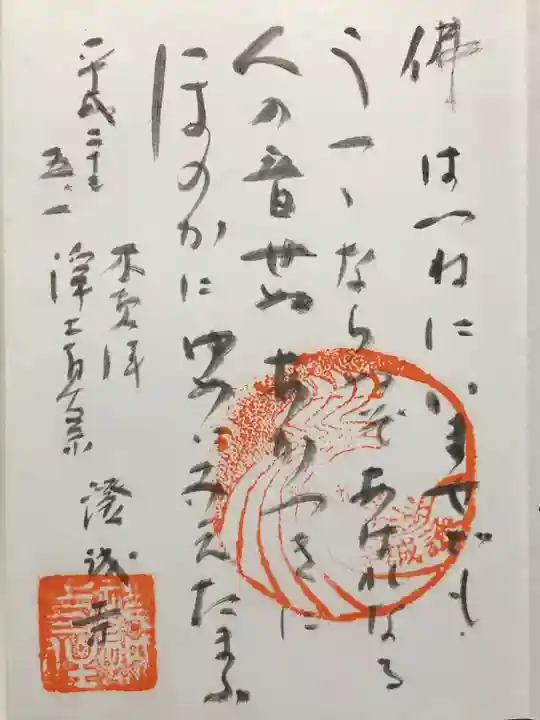 佛はつねにいませども
うつゝならぬぞあはれなる
人の音せぬあかつきに
ほのかに夢にみえたまふ
平成二十七
五・一
木魚洋
浄土真宗
澄誠寺